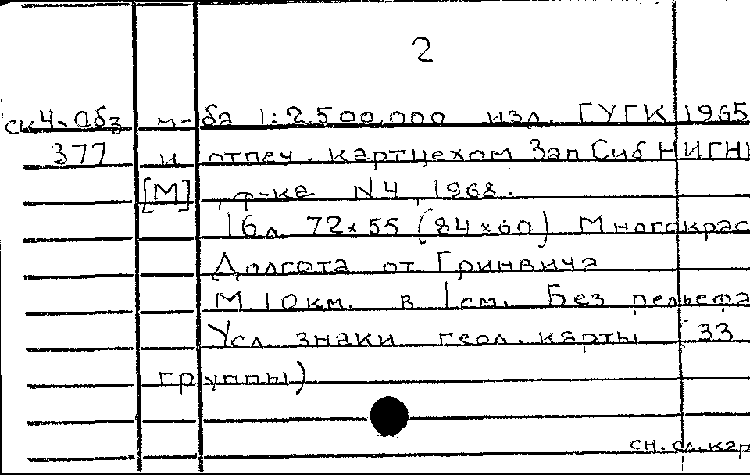 2
ск4-Обз м-ба 1:2.500.000 изд. ГУГК 1965
377 и отпеч. картцехом ЗапСибНИГНИ
[М] ф-ка N4, 1968.
16л. 72х55 (84х60) Многокрас
Долгота от Гринвича
М 10км. в 1см. Без рельефа
Усл. знаки геол. карты (33
группы)
сн. сл. кар